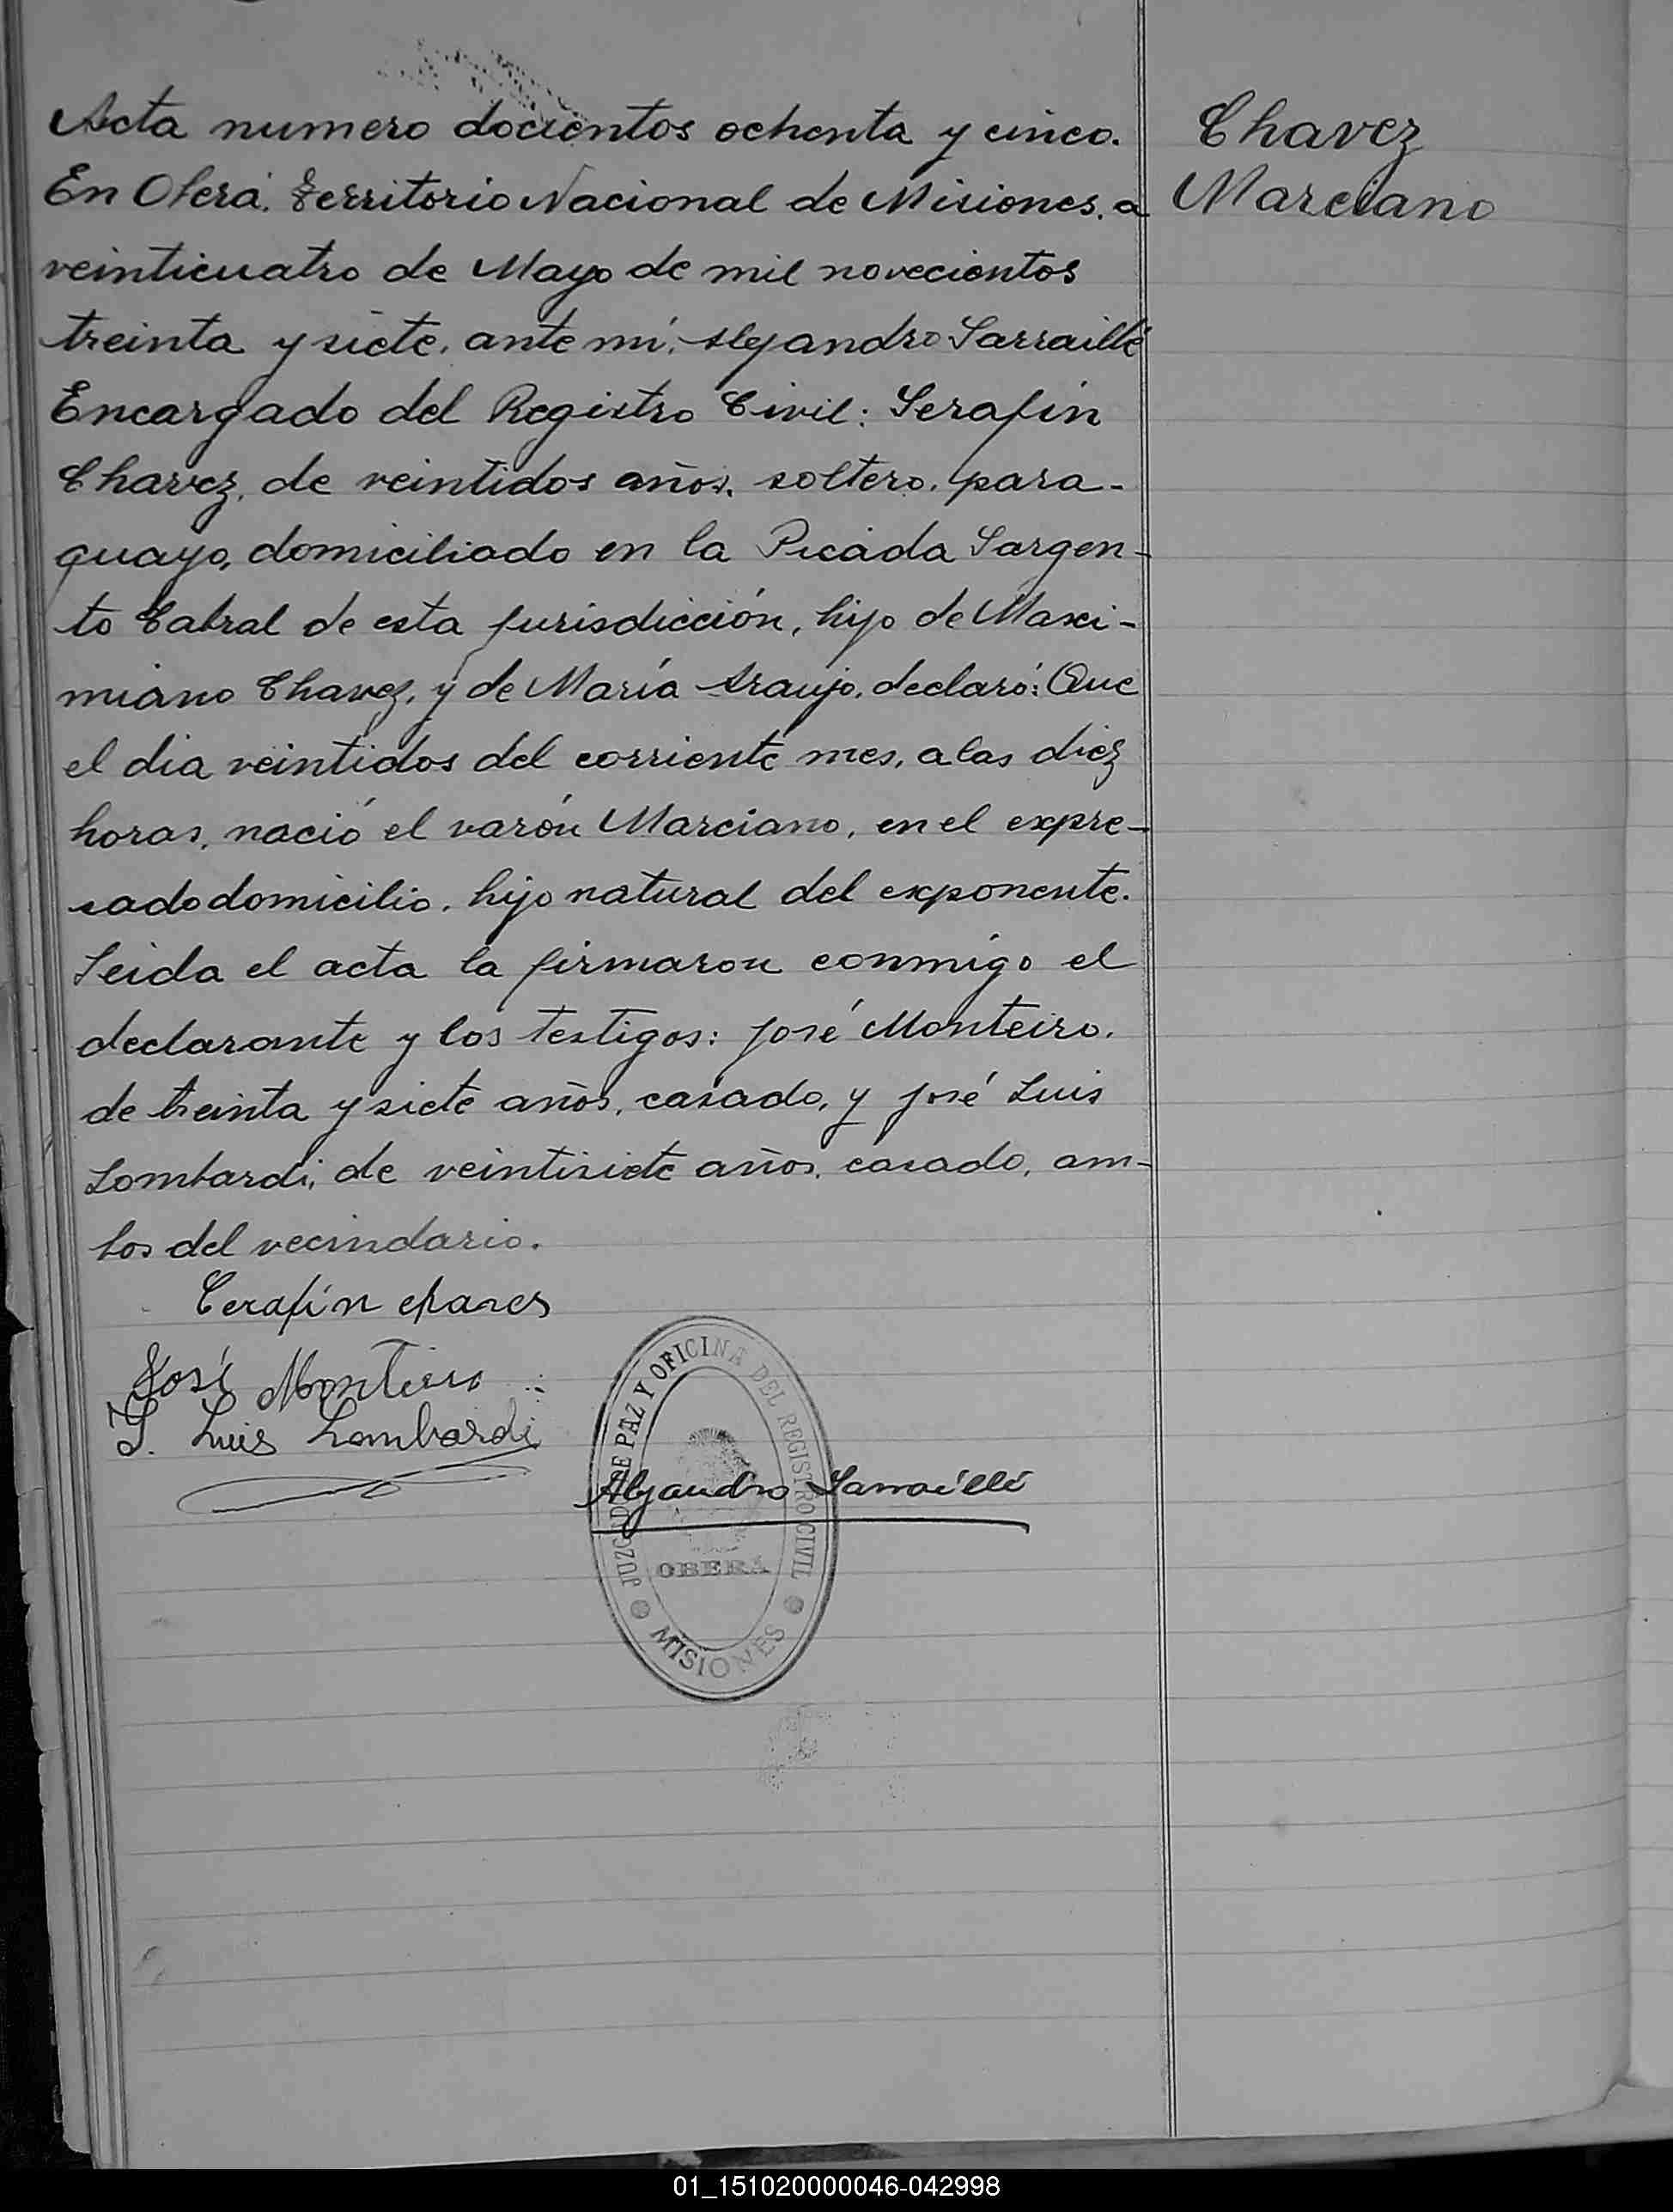 Acta numero docientos ochenta y cinco.
En Oberá, Territorio Nacional de Misiones, a
veinticuatro de Mayo de mil novecientos
treinta y siete, ante mí, Alejandro Sarraillé
Encargado del Registro Civil: Serafín
Chavez, de veintidos años, soltero, para-
guayo, domiciliado en la Picada Sargen-
to Cabral de esta jurisdicción, hijo de Maxi-
miano Chavez, y de María Araujo, declaró: Que
el dia veintidos del corriente mes, a las diez
horas, nació el varón Marciano, en el expre-
sado domicilio, hijo natural del exponente.
Leida el acta la firmaron conmigo el
declarante y los testigos: José Monteiro,
de treinta y siete años, casado, y José Luis
Lombardi, de veintisiete años, casado, am-
bos del vecindario.
Chavez
Marciano
Cerafín chaves
José Monteiro
J. Luis Lombardi
Alejandro Sarraillé
JUZGADO DE PAZ Y OFICINA DEL REGISTRO CIVIL
OBERÁ
MISIONES
01_151020000046-042998